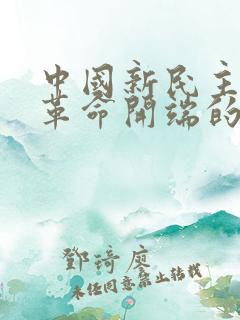 中國新民主
革命開端的
鄧琦廖
未经同意禁止转载